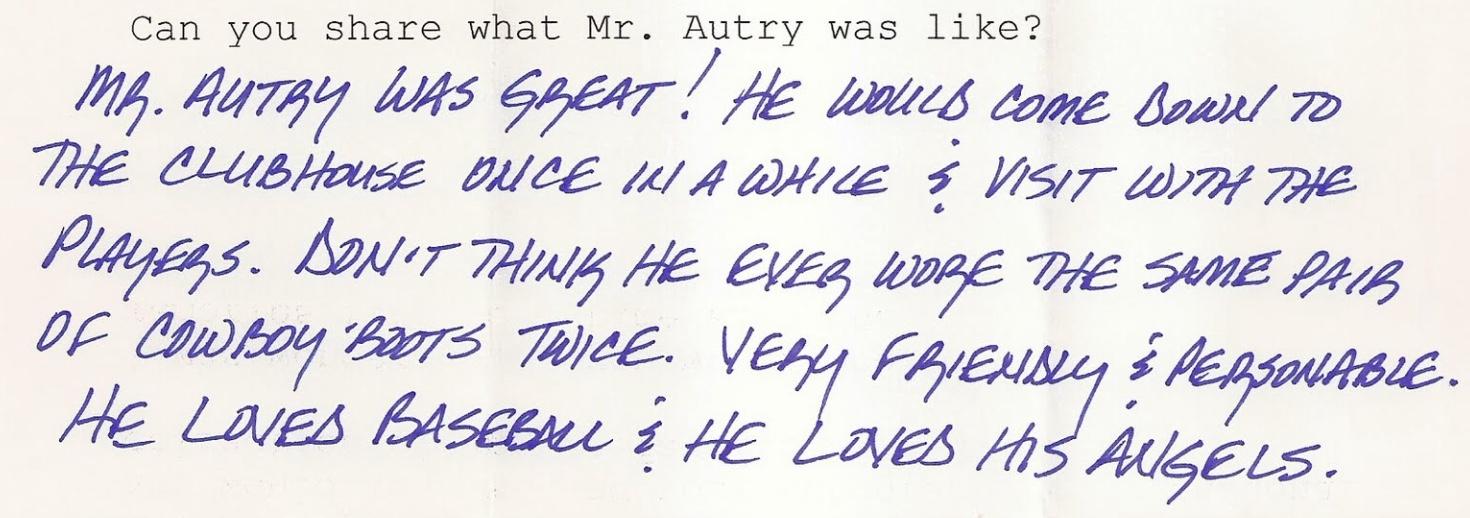 Can you share what Mr. Autry was like?
MR. AUTRY WAS GREAT! HE WOULD COME DOWN TO
THE CLUBHOUSE ONCE IN A WHILE & VISIT WITH THE
PLAYERS. DON'T THINK HE EVER WORE THE SAME PAIR
OF COWBOY BOOTS TWICE. VERY FRIENDLY & PERSONABLE.
HE LOVED BASEBALL & HE LOVED HIS ANGELS.